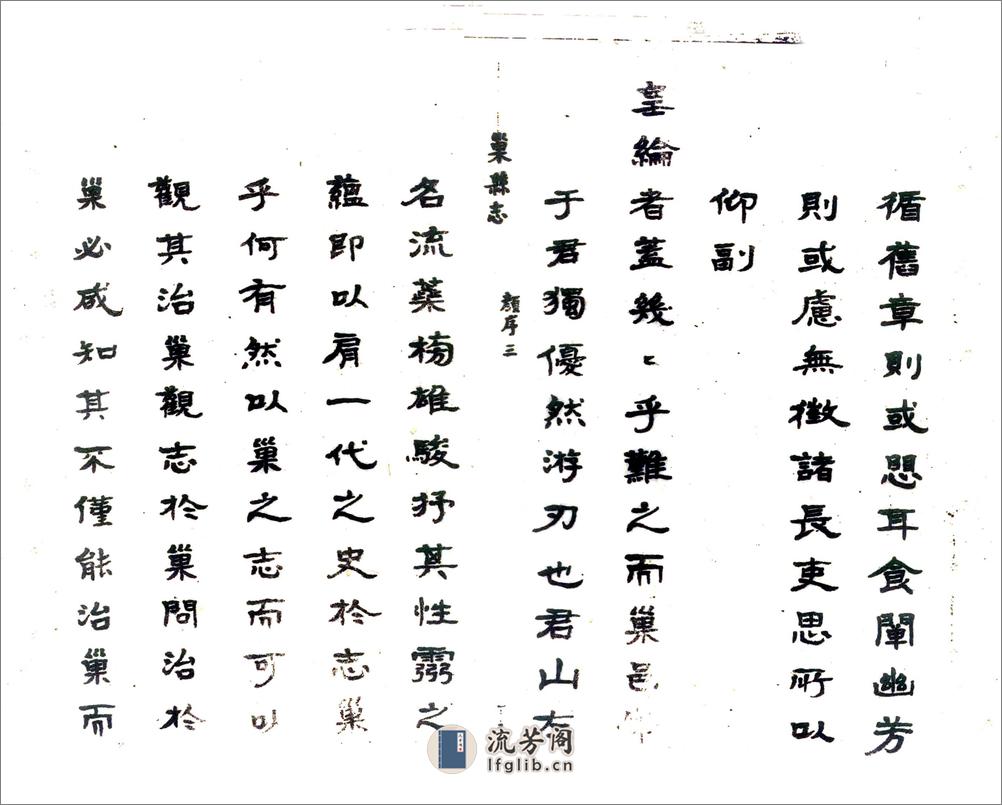 循舊章則或愳耳食闡幽芳
則或慮無徵諸長吏思所以
仰副
綸者蓋幾〻乎難之而巢邑
于君獨優然游刃也君山左
巢縣志 顏序三
名流藥榜雄駿抒其性靈之
蘊即以肩一代之史於志巢
乎何有然以巢之志而可以
觀其治巢觀志於巢問治於
巢必咸知其不僅能治巢而
流芳阁
lfglib.cn